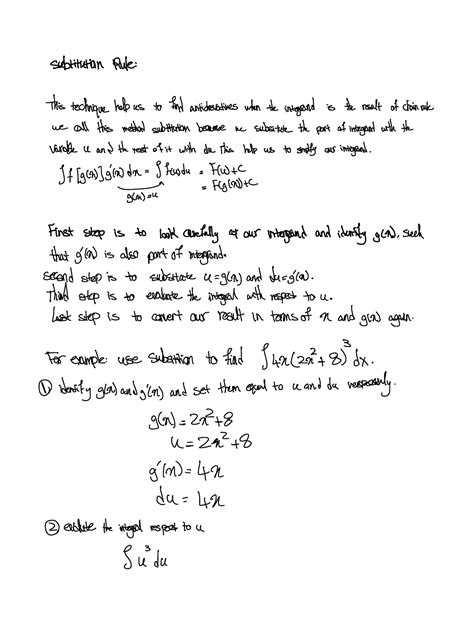 Substitution Rule:
This technique help us to find antiderivatives when the integrand is the result of chain rule
we call this method substitution because we substitute the part of integrand with the
variable u and the rest of it with du. This help us to simplify our integral.
∫f[g(x)]g'(x)dx = ∫f(u)du = F(u)+C
g(x)=u
= F(g(x))+C
First step is to look carefully at our integrand and identify g(x), such
that g'(x) is also part of integrand.
second step is to substitute u=g(x) and du=g'(x).
Third step is to evaluate the integral with respect to u.
Last step is to convert our result in terms of x and g(x) again.
For example: use substitution to find ∫4x(2x²+8)³dx.
① identify g(x) and g'(x) and set them equal to u and du respectively.
g(x)=2x²+8
u=2x²+8
g'(x)=4x
du=4x
② evaluate the integral respect to u
∫u³du